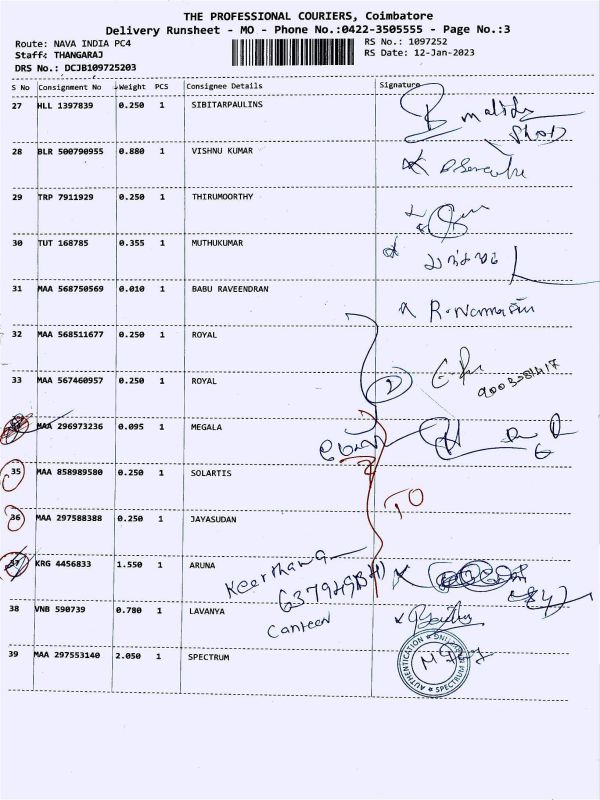 THE PROFESSIONAL COURIERS, Coimbatore
Delivery Runsheet - MO - Phone No.:0422-3505555 - Page No.:3
Route: NAVA INDIA PC4
RS No.: 1097252
Staff: THANGARAJ
RS Date: 12-Jan-2023
DRS No.: DCJB109725203
S No Consignment No Weight PCS Consignee Details Signature
27 HLL 1397839 0.250 1 SIBITARPAULINS
28 BLR 500790955 0.880 1 VISHNU KUMAR
29 TRP 7911929 0.250 1 THIRUMOORTHY
30 TUT 168785 0.355 1 MUTHUKUMAR
31 MAA 568750569 0.010 1 BABU RAVEENDRAN
32 MAA 568511677 0.250 1 ROYAL
33 MAA 567460957 0.250 1 ROYAL
2
MAA 296973236 0.095 1 MEGALA
35 MAA 858989580 0.250 1 SOLARTIS
TO
36 MAA 297588388 0.250 1 JAYASUDAN
37 KRG 4456833 1.550 1 ARUNA
Keerthana
38 VNB 590739 0.780 1 LAVANYA
Canteen
39 MAA 297553140 2.050 1 SPECTRUM
AUTHENTICATION
SPECTRUM